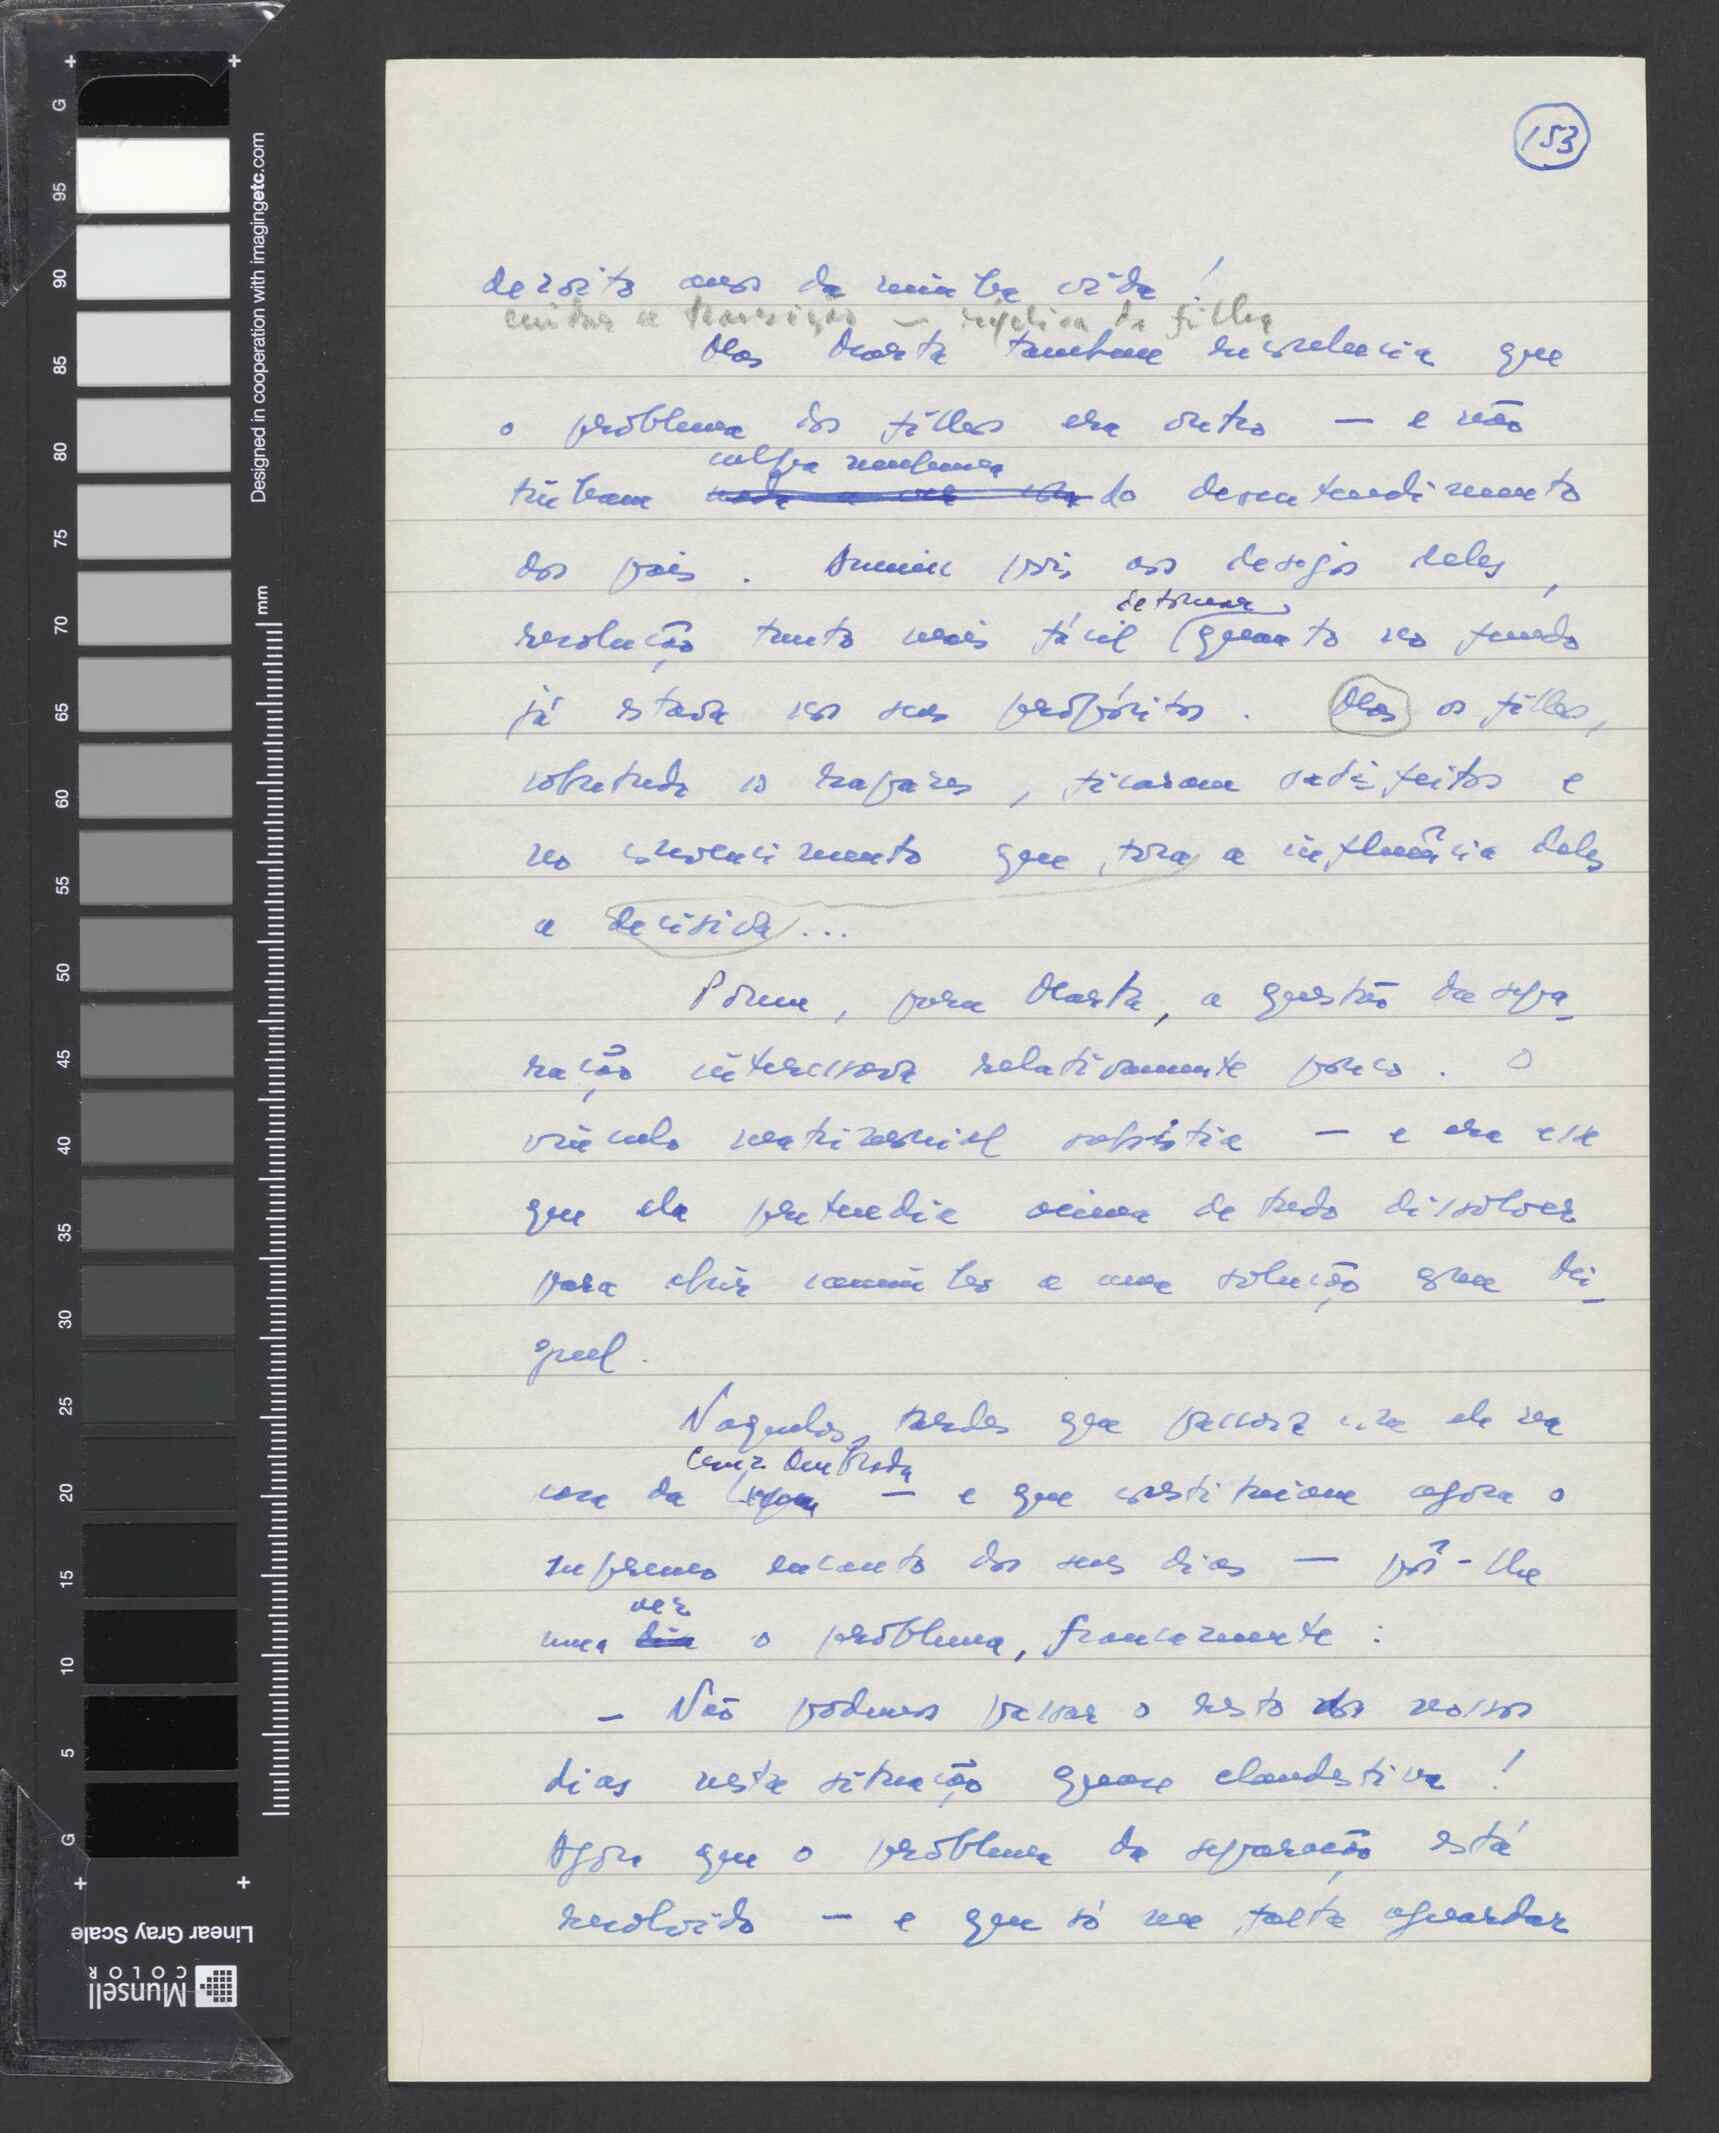 153
dezoito anos da minha vida!
cuidar a transição — réplica da filha
Mas Marta também reconhecia que
o problema dos filhos era outro — e não
culpa nenhuma
tinham nada a ver do desentendimento
dos pais. Anuiu pois aos desejos deles,
de tomar
resolução tanto mais fácil quanto no fundo
já estava nos seus propósitos. Mas os filhos,
sobretudo os rapazes, ficaram satisfeitos e
no convencimento que fora a influência deles
a decisiva...
Porém, para Marta, a questão da sepa-
ração interessava relativamente pouco. O
vínculo matrimonial subsistia — e era esse
que ela pretendia acima de tudo dissolver
para abrir caminho a uma solução que Mi-
guel.
Naquelas tardes que passava com ele na
casa da — e que constituiam agora o
supremo encanto dos seus dias — pôs-lhe
vez
uma dia o problema, francamente:
— Não podemos passar o resto dos nossos
dias nesta situação quase clandestina!
Agora que o problema da separação está
resolvido — e que só me falta aguardar
Designed in cooperation with imagingetc.com
mm
G
95
90
85
80
75
70
65
60
55
50
45
40
35
30
25
20
15
10
5
G
Linear Gray Scale
Munsell
COLOR